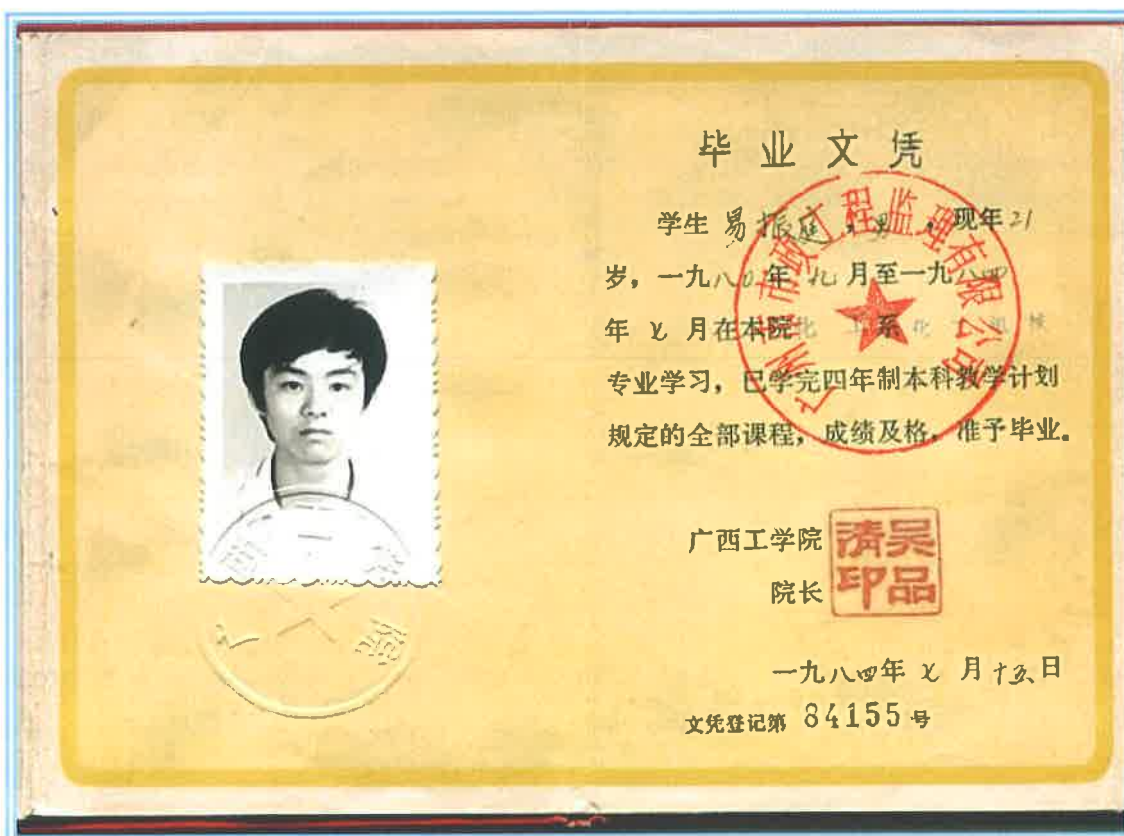 毕业文凭
学生 易振庭，男，现年21
岁，一九八〇年 九月至一九八四
年 七 月在本院化工系化工机械
专业学习，已学完四年制本科教学计划
规定的全部课程，成绩及格，准予毕业。
广州市市政工程监理有限公司
广西工学院
院长
吴品清印
一九八四年 七 月十五日
文凭登记第 84155 号